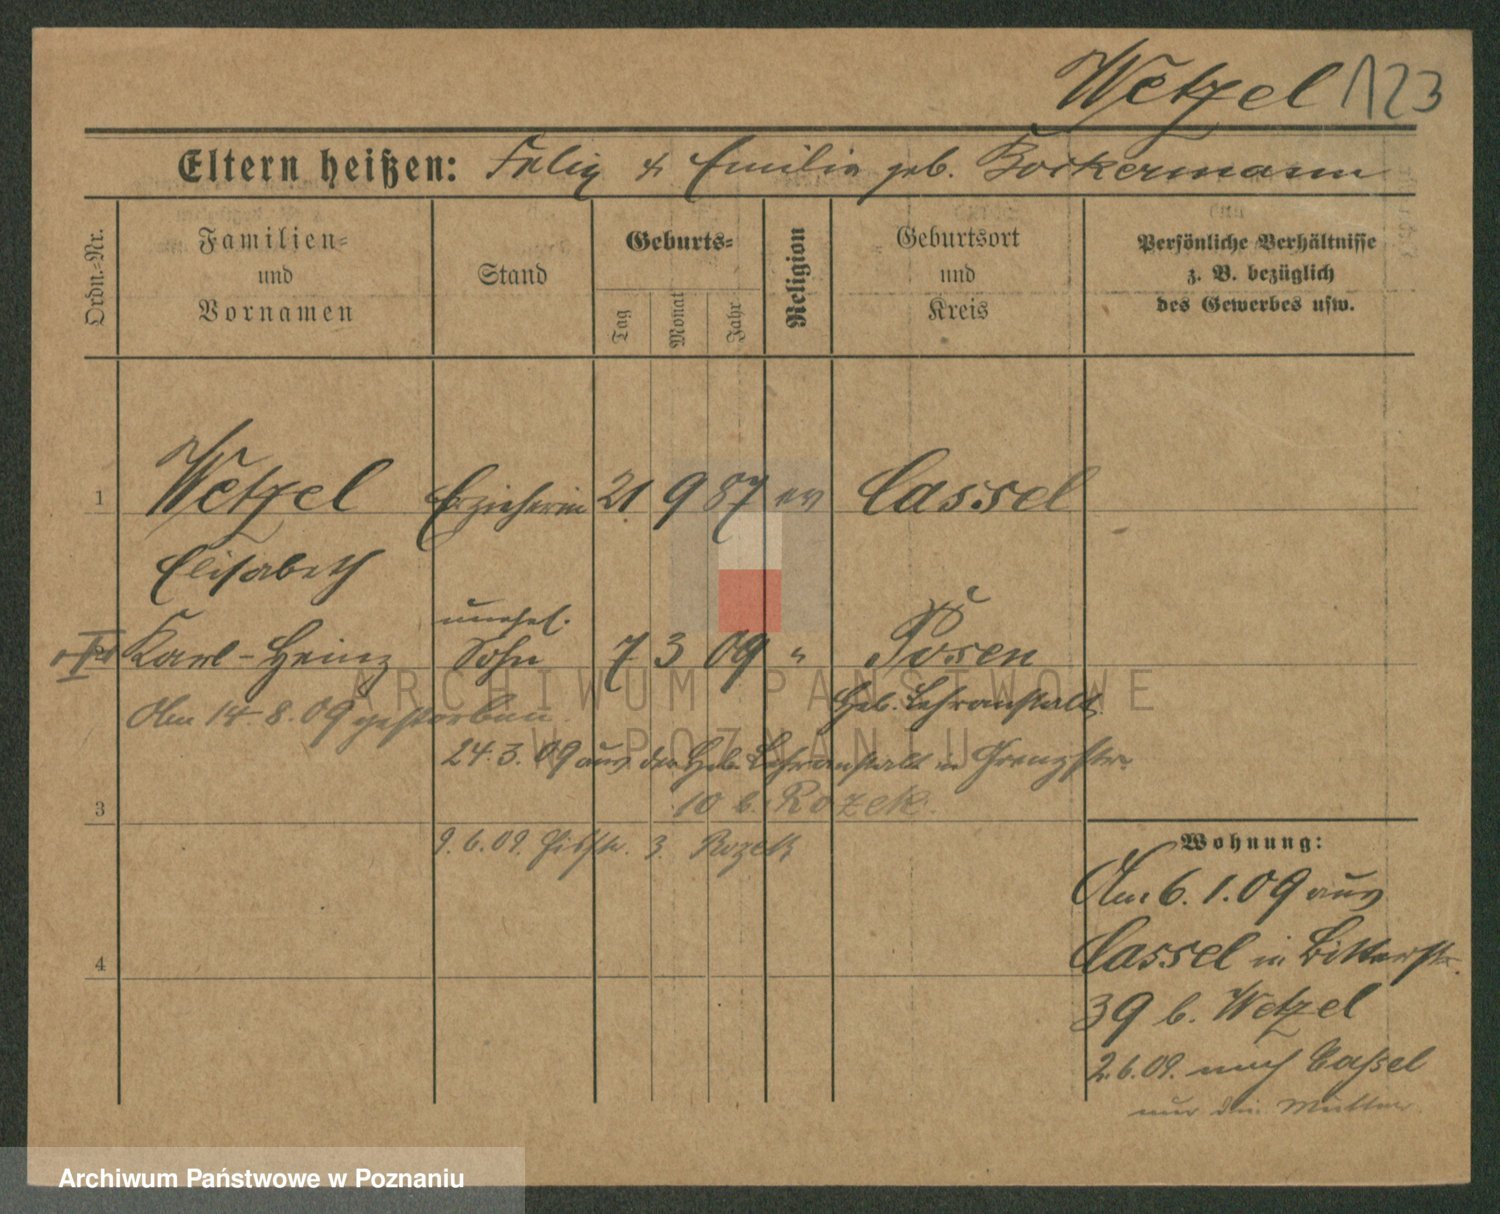 Wetzel 123
Eltern heißen: Felix & Emilie geb. Bockermann
Ordn.-Nr.
Familien-
und
Vornamen
Stand
Geburts-
Tag
Monat
Jahr
Religion
Geburtsort
und
Kreis
Persönliche Verhältnisse
z. B. bezüglich
des Gewerbes usw.
1 Wetzel Erzieherin 21 9 87 ev Cassel
Elisabeth
unehel.
Karl-Heinz Sohn 7 3 09 " Posen
Am 14.8.09 gestorben
Heb. Lehranstalt
24.3.09 aus der Heb. Lehranstalt in Grenzstr.
10 b. Rozek.
3
9.6.09. 3. Rozek
Wohnung:
Am 6.1.09 aus
Cassel in Ritterstr.
39 b. Wetzel
2.6.09. nach Cassel
nur die Mutter
4
ARCHIWUM PAŃSTWOWE
W POZNANIU
Archiwum Państwowe w Poznaniu